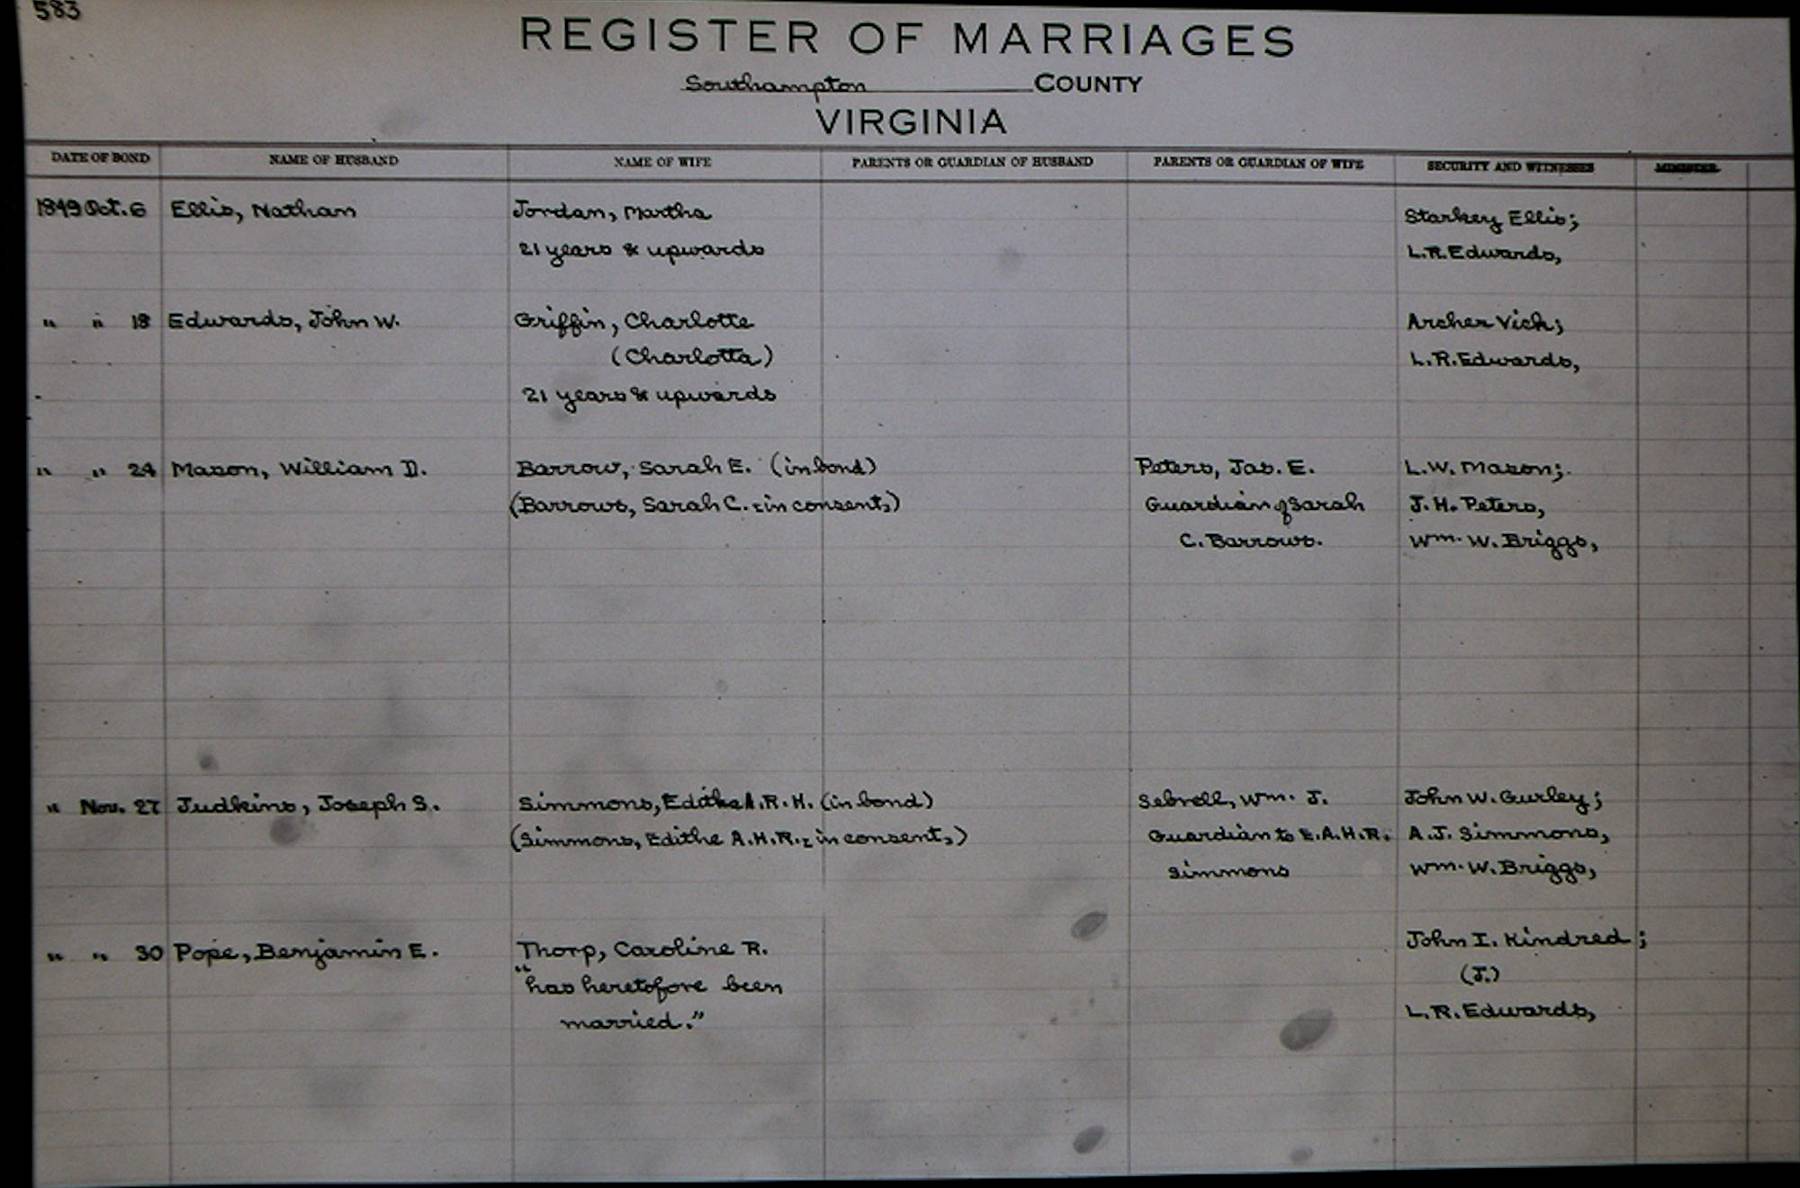 583
REGISTER OF MARRIAGES
Southampton COUNTY
VIRGINIA
DATE OF BOND NAME OF HUSBAND NAME OF WIFE PARENTS OR GUARDIAN OF HUSBAND PARENTS OR GUARDIAN OF WIFE SECURITY AND WITNESSES MINISTER
1849 Oct. 6 Ellis, Nathan Jordan, Martha Starkey Ellis;
21 years & upwards L.R. Edwards,
" " 18 Edwards, John W. Griffin, Charlotte Archer Vick;
(Charlotta) L.R. Edwards,
21 years & upwards
" " 24 Mason, William D. Barrow, Sarah E. (in bond) Peters, Jas. E. L.W. Mason;
(Barrows, Sarah C. - in consent,) Guardian of Sarah J.H. Peters,
C. Barrows. Wm. W. Briggs,
" Nov. 27 Judkins, Joseph S. Simmons, Edithe A.R.H. (in bond) Sebrell, Wm. J. John W. Gurley;
(Simmons, Edithe A.H.R., in consent,) Guardian to E.A.H.R. A.J. Simmons,
Simmons Wm. W. Briggs,
" " 30 Pope, Benjamin E. Thorp, Caroline R. John I. Kindred;
"has heretofore been (J.)
married." L.R. Edwards,